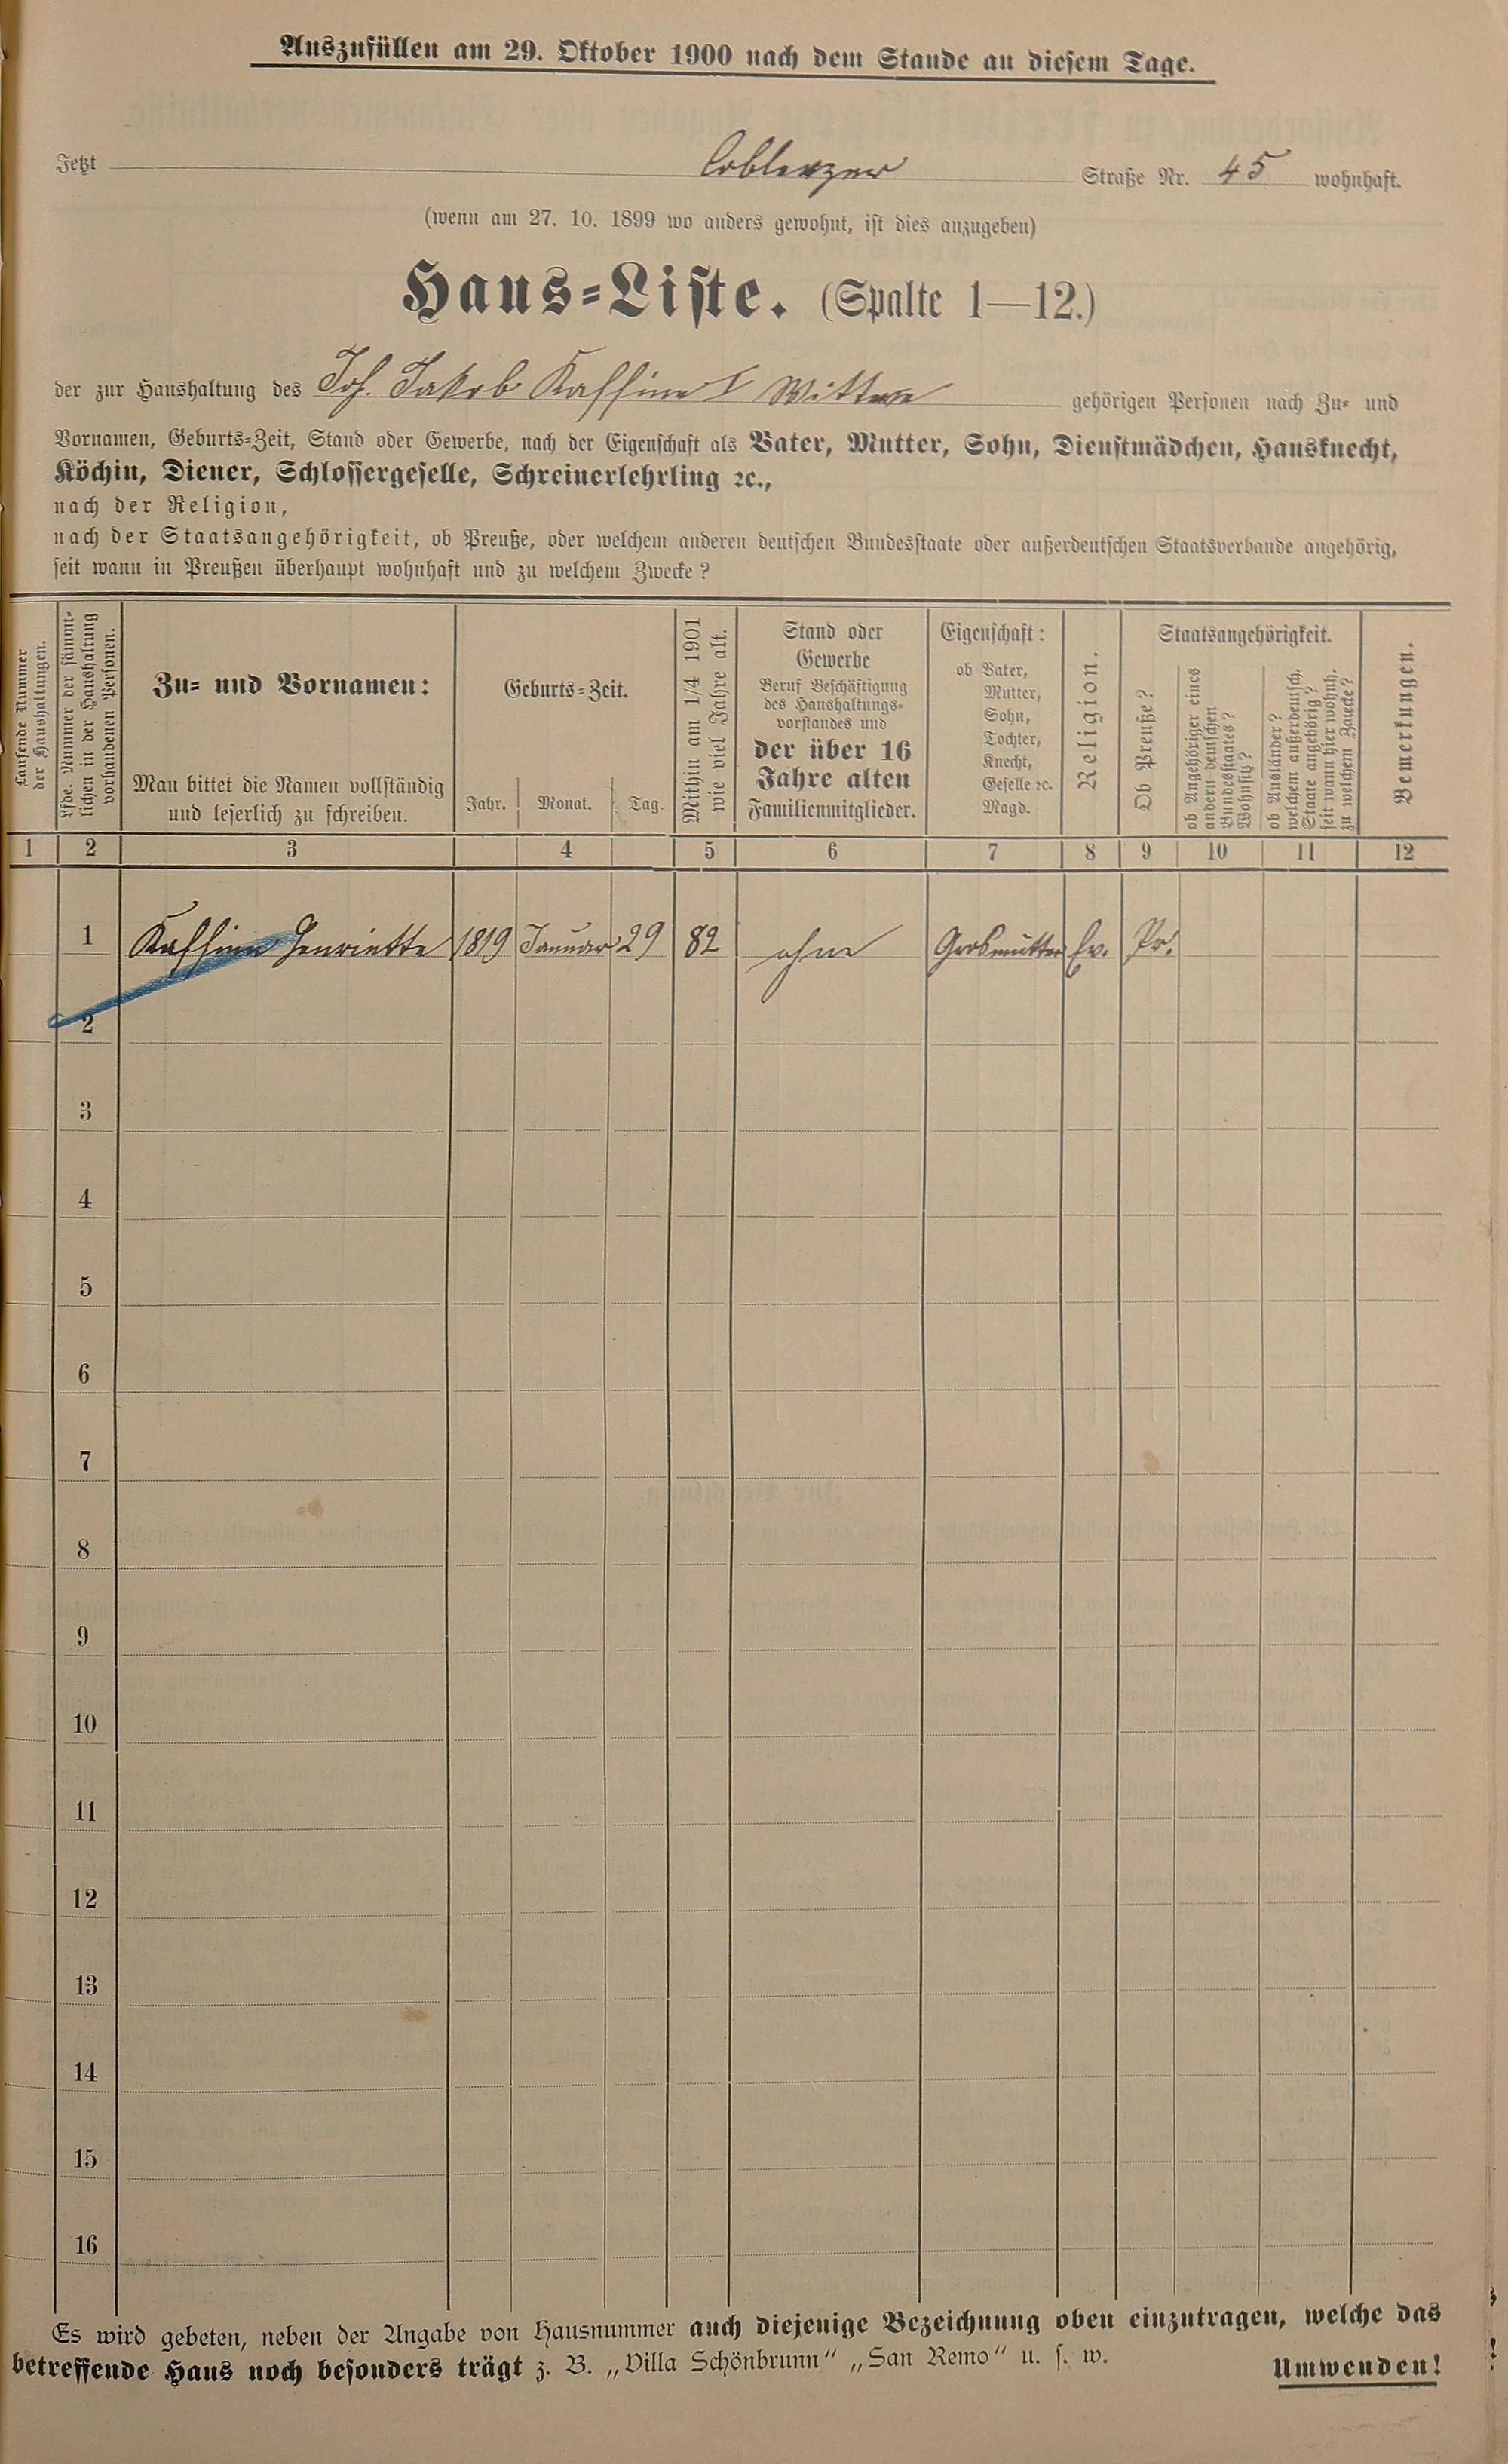 Auszufüllen am 29. Oktober 1900 nach dem Stande an diesem Tage.
Jetzt Coblenzer Straße Nr. 45 wohnhaft.
(wenn am 27. 10. 1899 wo anders gewohnt, ist dies anzugeben)
Haus=Liste. (Spalte 1—12.)
der zur Haushaltung des Joh. Jakob Kaffine I Wittwe gehörigen Personen nach Zu= und
Vornamen, Geburts=Zeit, Stand oder Gewerbe, nach der Eigenschaft als Vater, Mutter, Sohn, Dienstmädchen, Hausknecht,
Köchin, Diener, Schlossergeselle, Schreinerlehrling ꝛc.,
nach der Religion,
nach der Staatsangehörigkeit, ob Preuße, oder welchem anderen deutschen Bundesstaate oder außerdeutschen Staatsverbande angehörig,
seit wann in Preußen überhaupt wohnhaft und zu welchem Zwecke?
Laufende Nummer
der Haushaltungen.
Lfde. Nummer der sämmt=
lichen in der Haushaltung
vorhandenen Personen.
Zu= und Vornamen:
Man bittet die Namen vollständig
und leserlich zu schreiben.
Geburts=Zeit.
Jahr. Monat. Tag.
Mithin am 1/4 1901
wie viel Jahre alt.
Stand oder
Gewerbe
Beruf Beschäftigung
des Haushaltungs=
vorstandes und
der über 16
Jahre alten
Familienmitglieder.
Eigenschaft:
ob Vater,
Mutter,
Sohn,
Tochter,
Knecht,
Geselle ꝛc.
Magd.
Religion.
Staatsangehörigkeit.
Ob Preuße?
ob Angehöriger eines
andern deutschen
Bundesstaates?
Wohnsitz?
ob Ausländer?
welchem außerdeutsch.
Staate angehörig?
seit wann hier wohnh.
zu welchem Zwecke?
Bemerkungen.
1 2 3 4 5 6 7 8 9 10 11 12
1 Kaffine Henriette 1819 Januar 29 82 ohne Grosmutter Ev. Pr.
2
3
4
5
6
7
8
9
10
11
12
13
14
15
16
Es wird gebeten, neben der Angabe von Hausnummer auch diejenige Bezeichnung oben einzutragen, welche das
betreffende Haus noch besonders trägt z. B. „Villa Schönbrunn“ „San Remo“ u. s. w.
Umwenden!